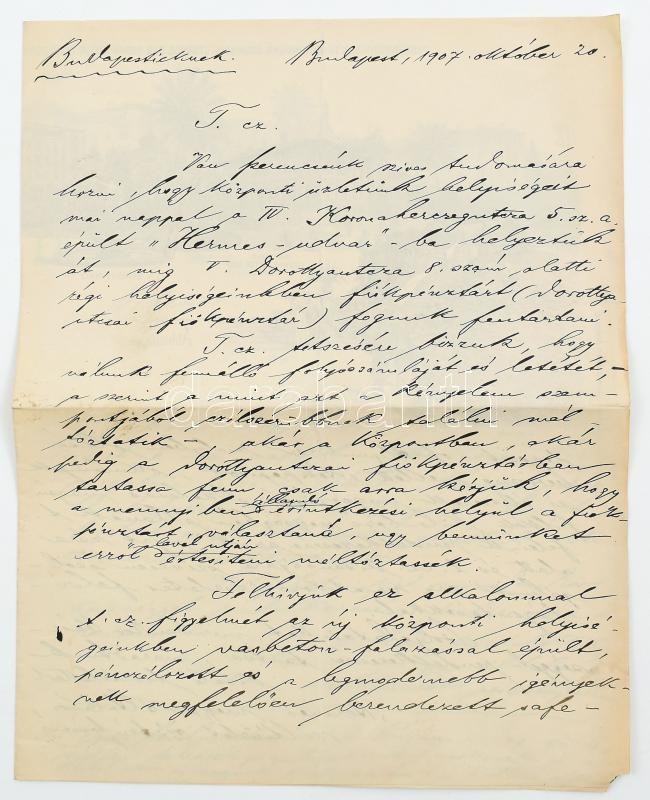 Budapestieknek. Budapest, 1907. október 20.
T. cz.
Van szerencsénk szives tudomására
hozni, hogy központi üzletünk helyiségeit
mai nappal a IV. Koronaherczegutcza 5. sz. a.
épült „Hermes-udvar"-ba helyeztük
át, mig V. Dorottyautcza 8. szám alatti
régi helyiségeinkben fiókpénztárt (Dorottya-
utczai fiókpénztár) fogunk fentartani.
T. cz. tetszésére bizzuk, hogy
nálunk fennálló folyószámláját és letétét, –
a szerint a mint azt a kényelem szem-
pontjából czélszerübbnek találni mél-
tóztatik – akár a központban, akár
pedig a Dorottyautczai fiókpénztárban
tartassa fenn, csak arra kérjük, hogy
a mennyiben állandó érintkezési helyül a fiók-
pénztárt választaná, ugy bennünket
erről levél utján értesiteni méltóztassék.
Felhivjuk ez alkalommal
t. cz. figyelmét az új központi helyisé-
geinkben vasbeton-falazással épült,
pánczélozott és a legmodernebb igények-
nek megfelelően berendezett safe-
darabanth